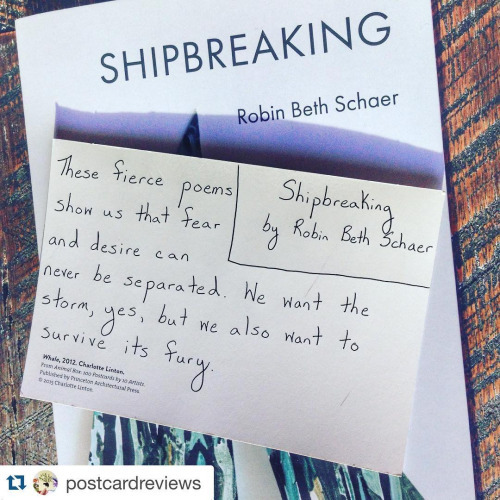 SHIPBREAKING
Robin Beth Schaer
These fierce poems
show us that fear
and desire can
never be separated. We want the
storm, yes, but we also want to
survive its fury.
Shipbreaking
by Robin Beth Schaer
Whale, 2012. Charlotte Linton.
From Animal Box: 100 Postcards by 10 Artists.
Published by Princeton Architectural Press.
© 2013 Charlotte Linton.
postcardreviews